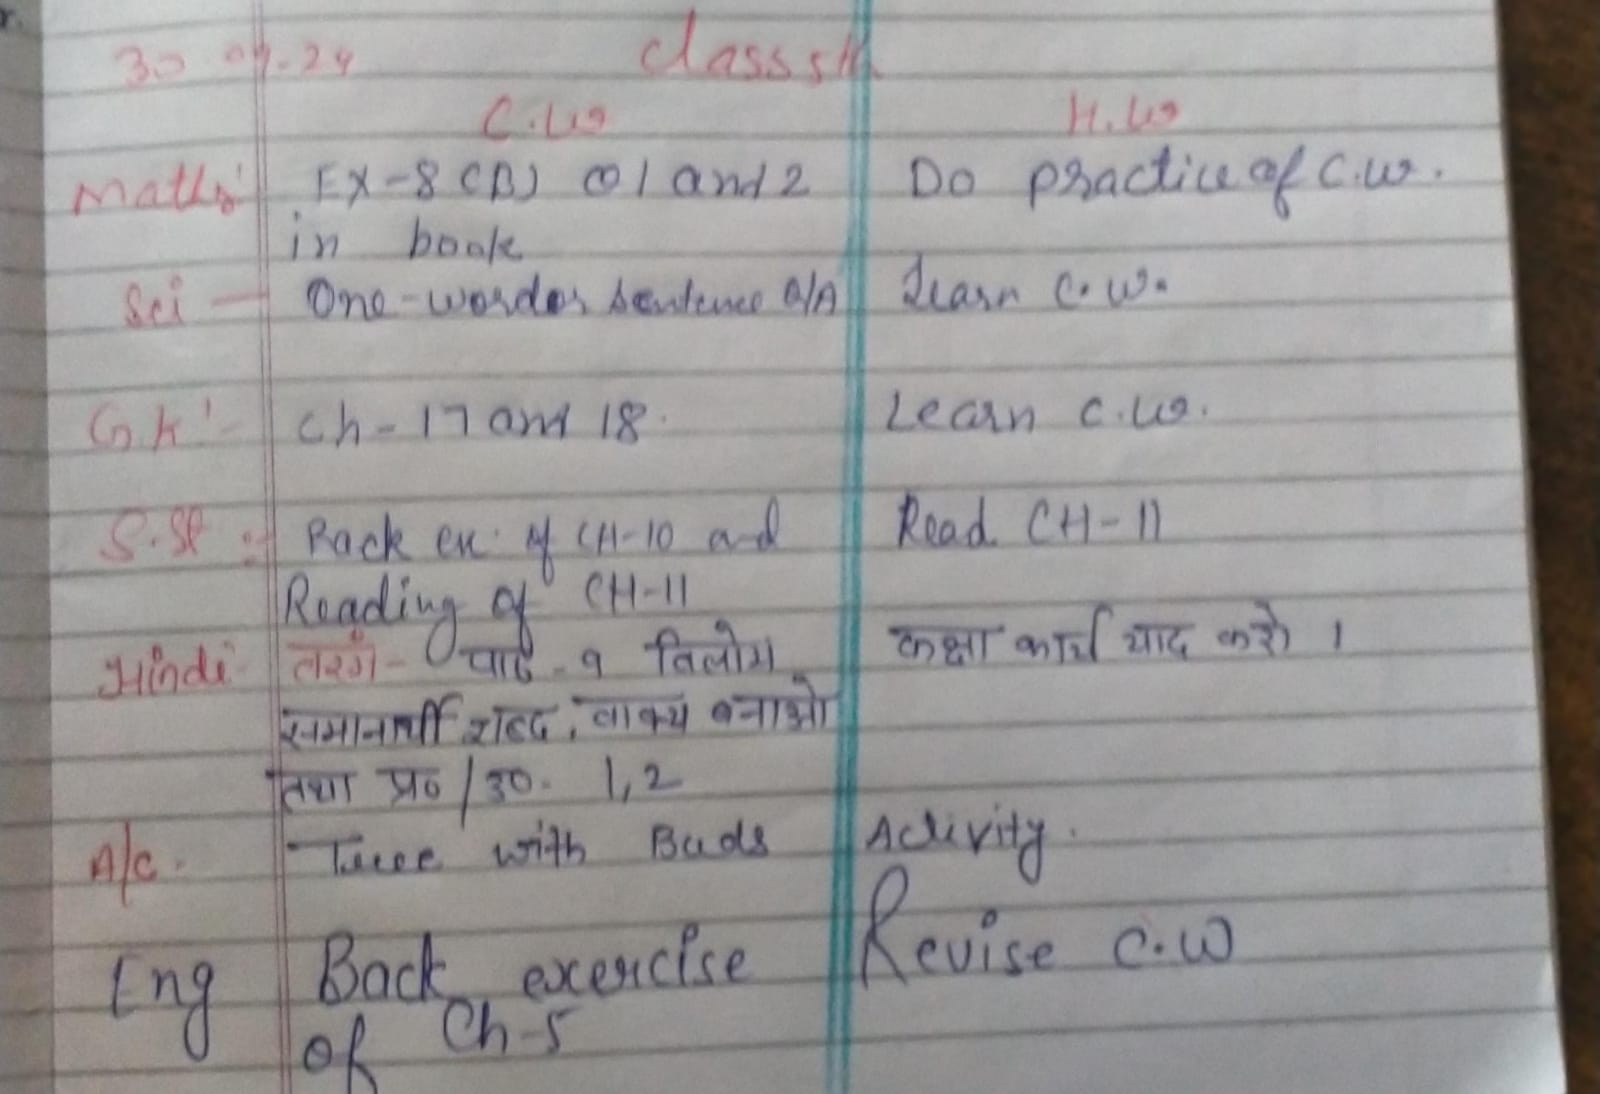 30 07.24 Class 5th
C.W H.W
Maths EX-8(B) Q1 and 2 Do practice of C.W.
in book
Sci — One-word or Sentence Q/A Learn C.W.
G.K - Ch-17 and 18. Learn C.W.
S.St :- Back ex. of CH-10 and Read CH-11
Reading of CH-11
Hindi तरंग- पाठ-9 विलोम कक्षा कार्य याद करो ।
समानार्थी शब्द, वाक्य बनाओ
तथा प्र०/उ०. 1,2
A/C. Tree with Buds Activity.
Eng Back exercise Revise C.W
of Ch-5